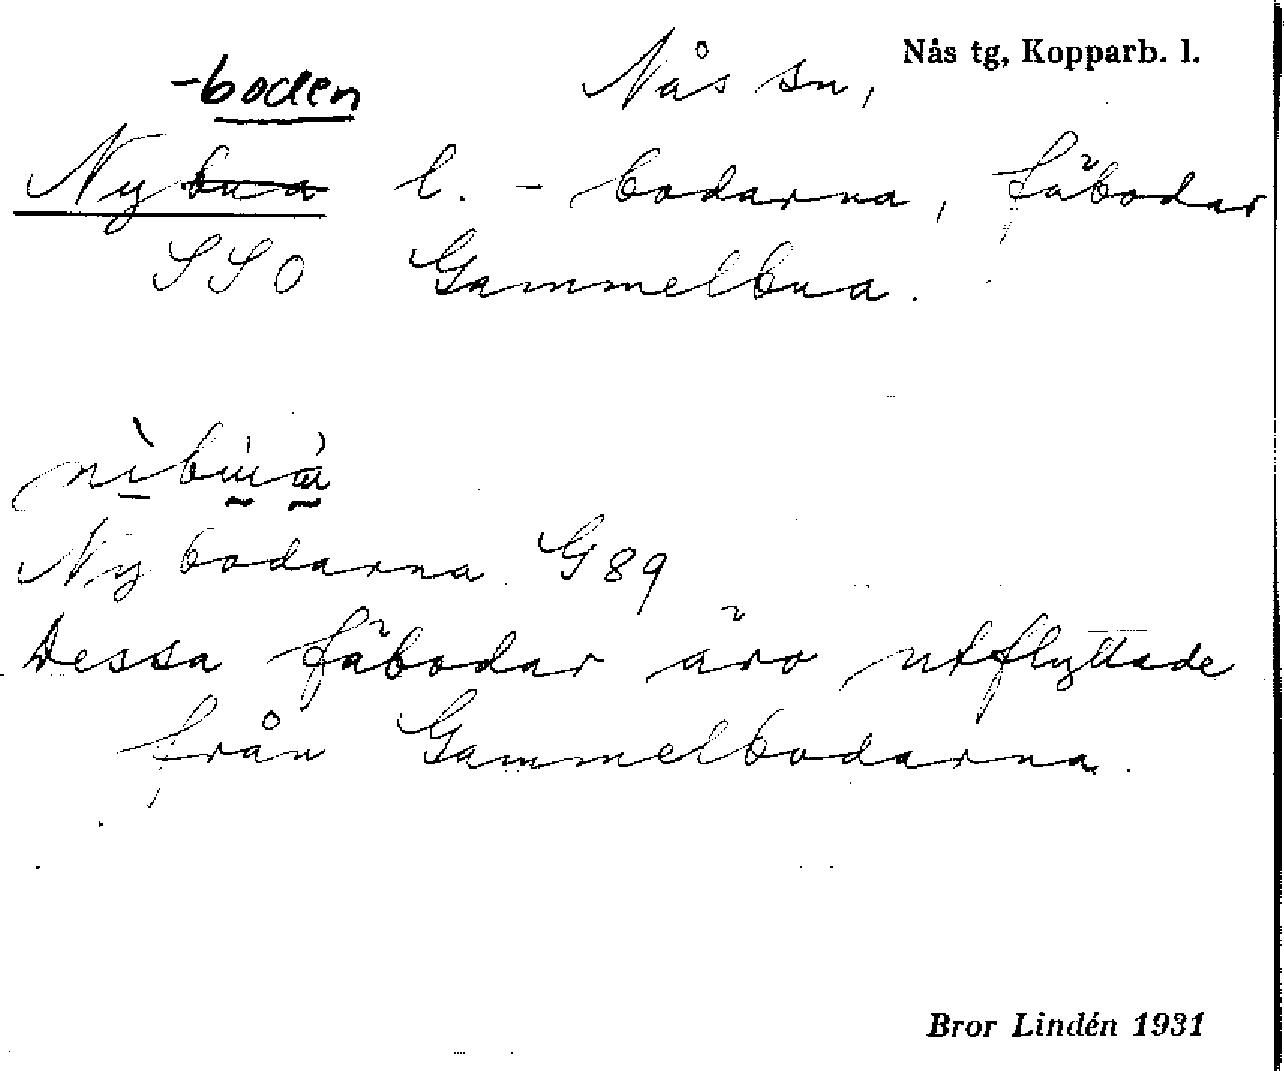 Nås tg, Kopparb. l.
Nås sn,
-boden
Nybua l. -bodarna, fäbodar
SSO Gammelbua.
Nybodarna G89
Dessa fäbodar äro utflyttade
från Gammelbodarna.
Bror Lindén 1931